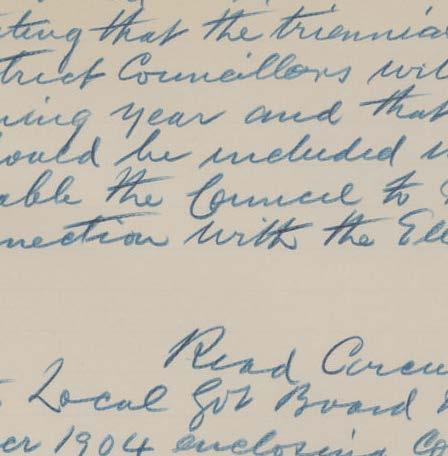 ting that the triennia
trict Councillors wil
ning year and that
ould be included
able the Council to
nection with the Ele
Read Circu
Local Govt Board
er 1904 enclosing